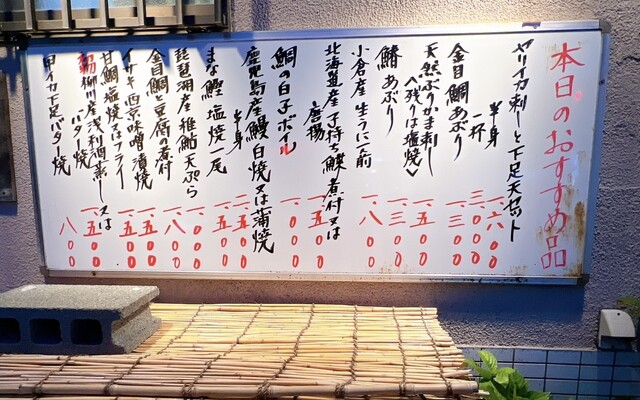 本日のおすすめ品
ヤリイカ刺しと下足天セット 一、六〇〇
半身 三、〇〇〇
一杯
金目鯛あぶり 一、三〇〇
天然ぶりかま刺し 一、五〇〇
〈残りは塩焼〉
鰆あぶり 一、三〇〇
小倉産生うに一前 一、八〇〇
北海道産子持ち鰈煮付又は
唐揚 一、五〇〇
鯛の白子ボイル 一、〇〇〇
鹿児島産鰻白焼又は蒲焼
半身 二、五〇〇
まな鰹塩焼一尾 一、五〇〇
琵琶湖産稚鮎天ぷら 一、〇〇〇
金目鯛と豆腐の煮付 一、八〇〇
イサキ西京味噌漬焼 一、五〇〇
甘鯛塩焼又はフライ 一、五〇〇
産浅利酒蒸し又は
バター焼 一、五〇〇
甲イカ下足バター焼 八〇〇